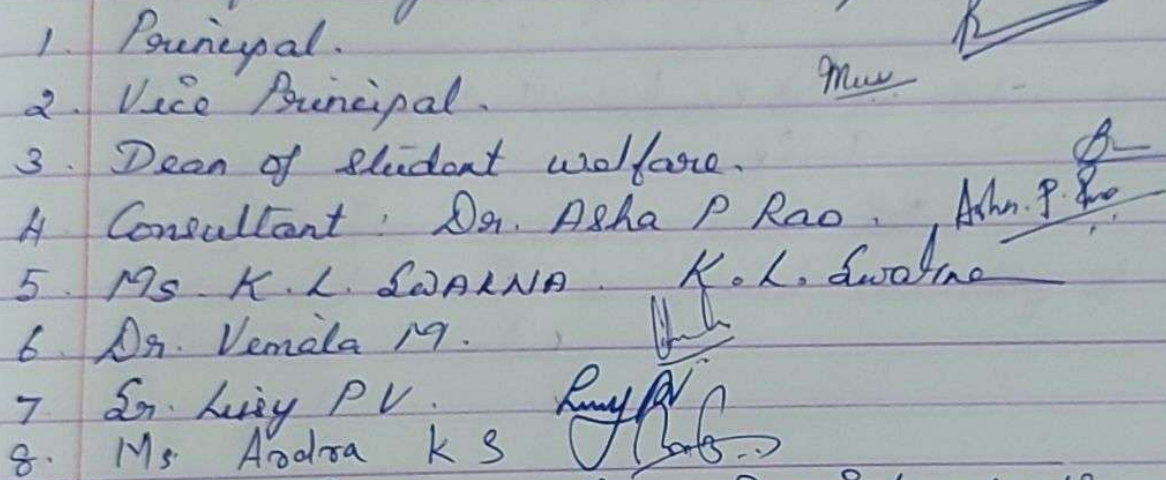 1. Principal.
2. Vice Principal.
3. Dean of student welfare.
4 Consultant : Dr. Asha P Rao. Asha. P. Rao
5. Ms. K. L. SWARNA. K. L. Swarna
6. Dr. Vemala M.
7 Sr. Lucy P V. Lucy PV
8. Ms. Ardra K S